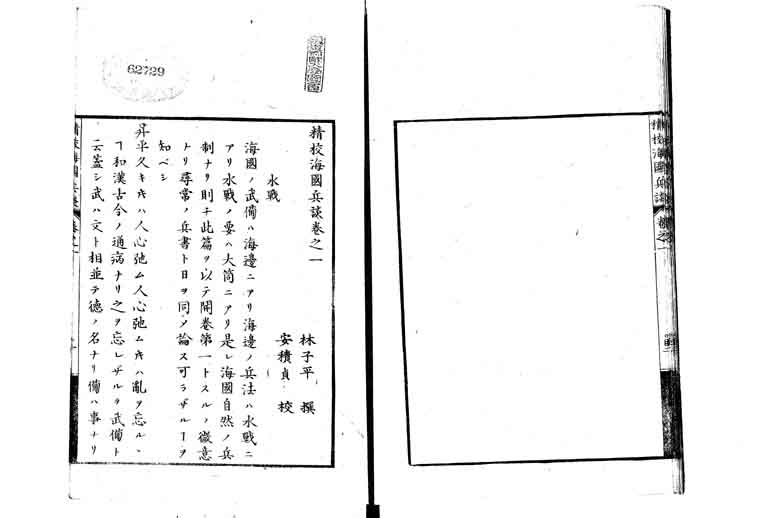 精校海國兵談
62729
精校海國兵談卷之一
林子平 撰
安積貞 校
水戰
海國ノ武備ハ海邊ニアリ海邊ノ兵法ハ水戰ニ
アリ水戰ノ要ハ大筒ニアリ是レ海國自然ノ兵
制ナリ則チ此篇ヲ以テ開卷第一トスルノ微意
ナリ尋常ノ兵書ト日ヲ同𬼀論ス可ラザルヿヲ
知ベシ
昇平久キ𬼂ハ人心弛ム人心弛ム𬼂ハ亂ヲ忘ルヽ
ヿ和漢古今ノ通病ナリ之ヲ忘レザルヲ武備ト
云蓋シ武ハ文ト相並テ德ノ名ナリ備ハ事ナリ
精校海國兵談 卷之一